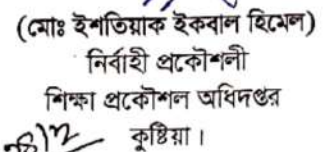 (মোঃ ইশতিয়াক ইকবাল হিমেল)
নির্বাহী প্রকৌশলী
শিক্ষা প্রকৌশল অধিদপ্তর
কুষ্টিয়া।